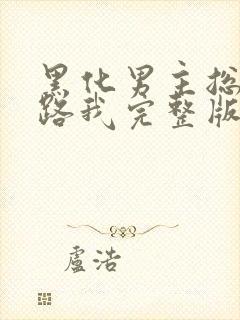 黑化男主总
路我完整版
盧浩